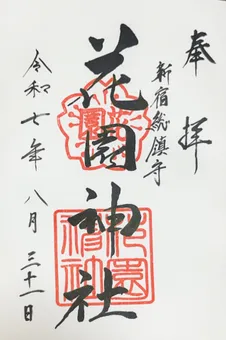 奉拝
新宿総鎮守
花園神社
令和七年八月三十一日
花園
花園神社